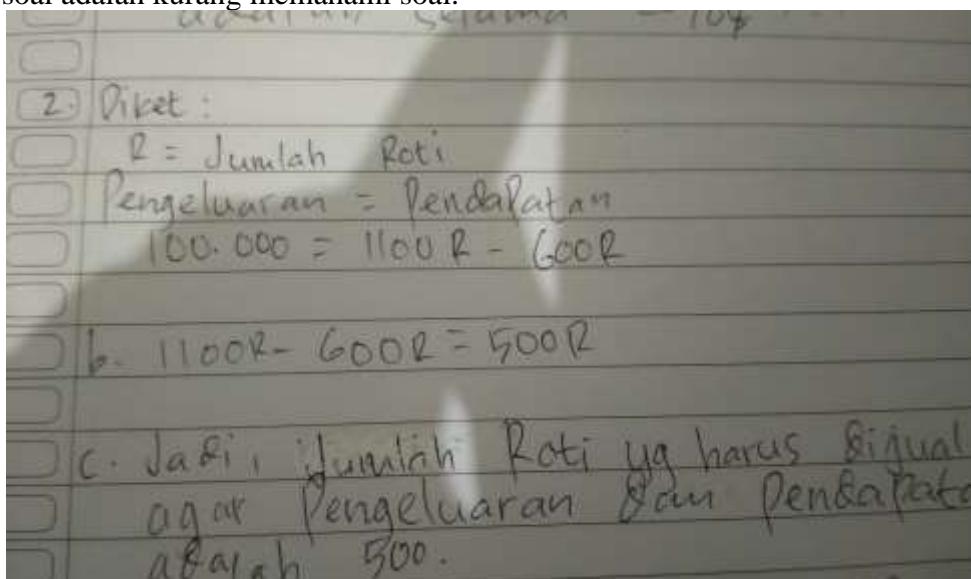 soal adalah kurang memahami soal.
adalah selama = 104
2. Diket :
R = Jumlah Roti
Pengeluaran = Pendapatan
100.000 = 1100 R - 600R
b. 1100R - 600R = 500R
c. Jadi, Jumlah Roti yg harus dijual
agar Pengeluaran dan Pendapata
adalah 500.